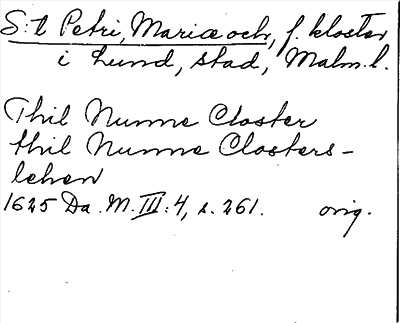 S:t Petri, Mariæ och, f. kloster
i Lund, stad, Malm. l.
Thil Nunne Closter
thil Nunne Closters-
lehen
1625 Da. M. III:4, s. 261. orig.